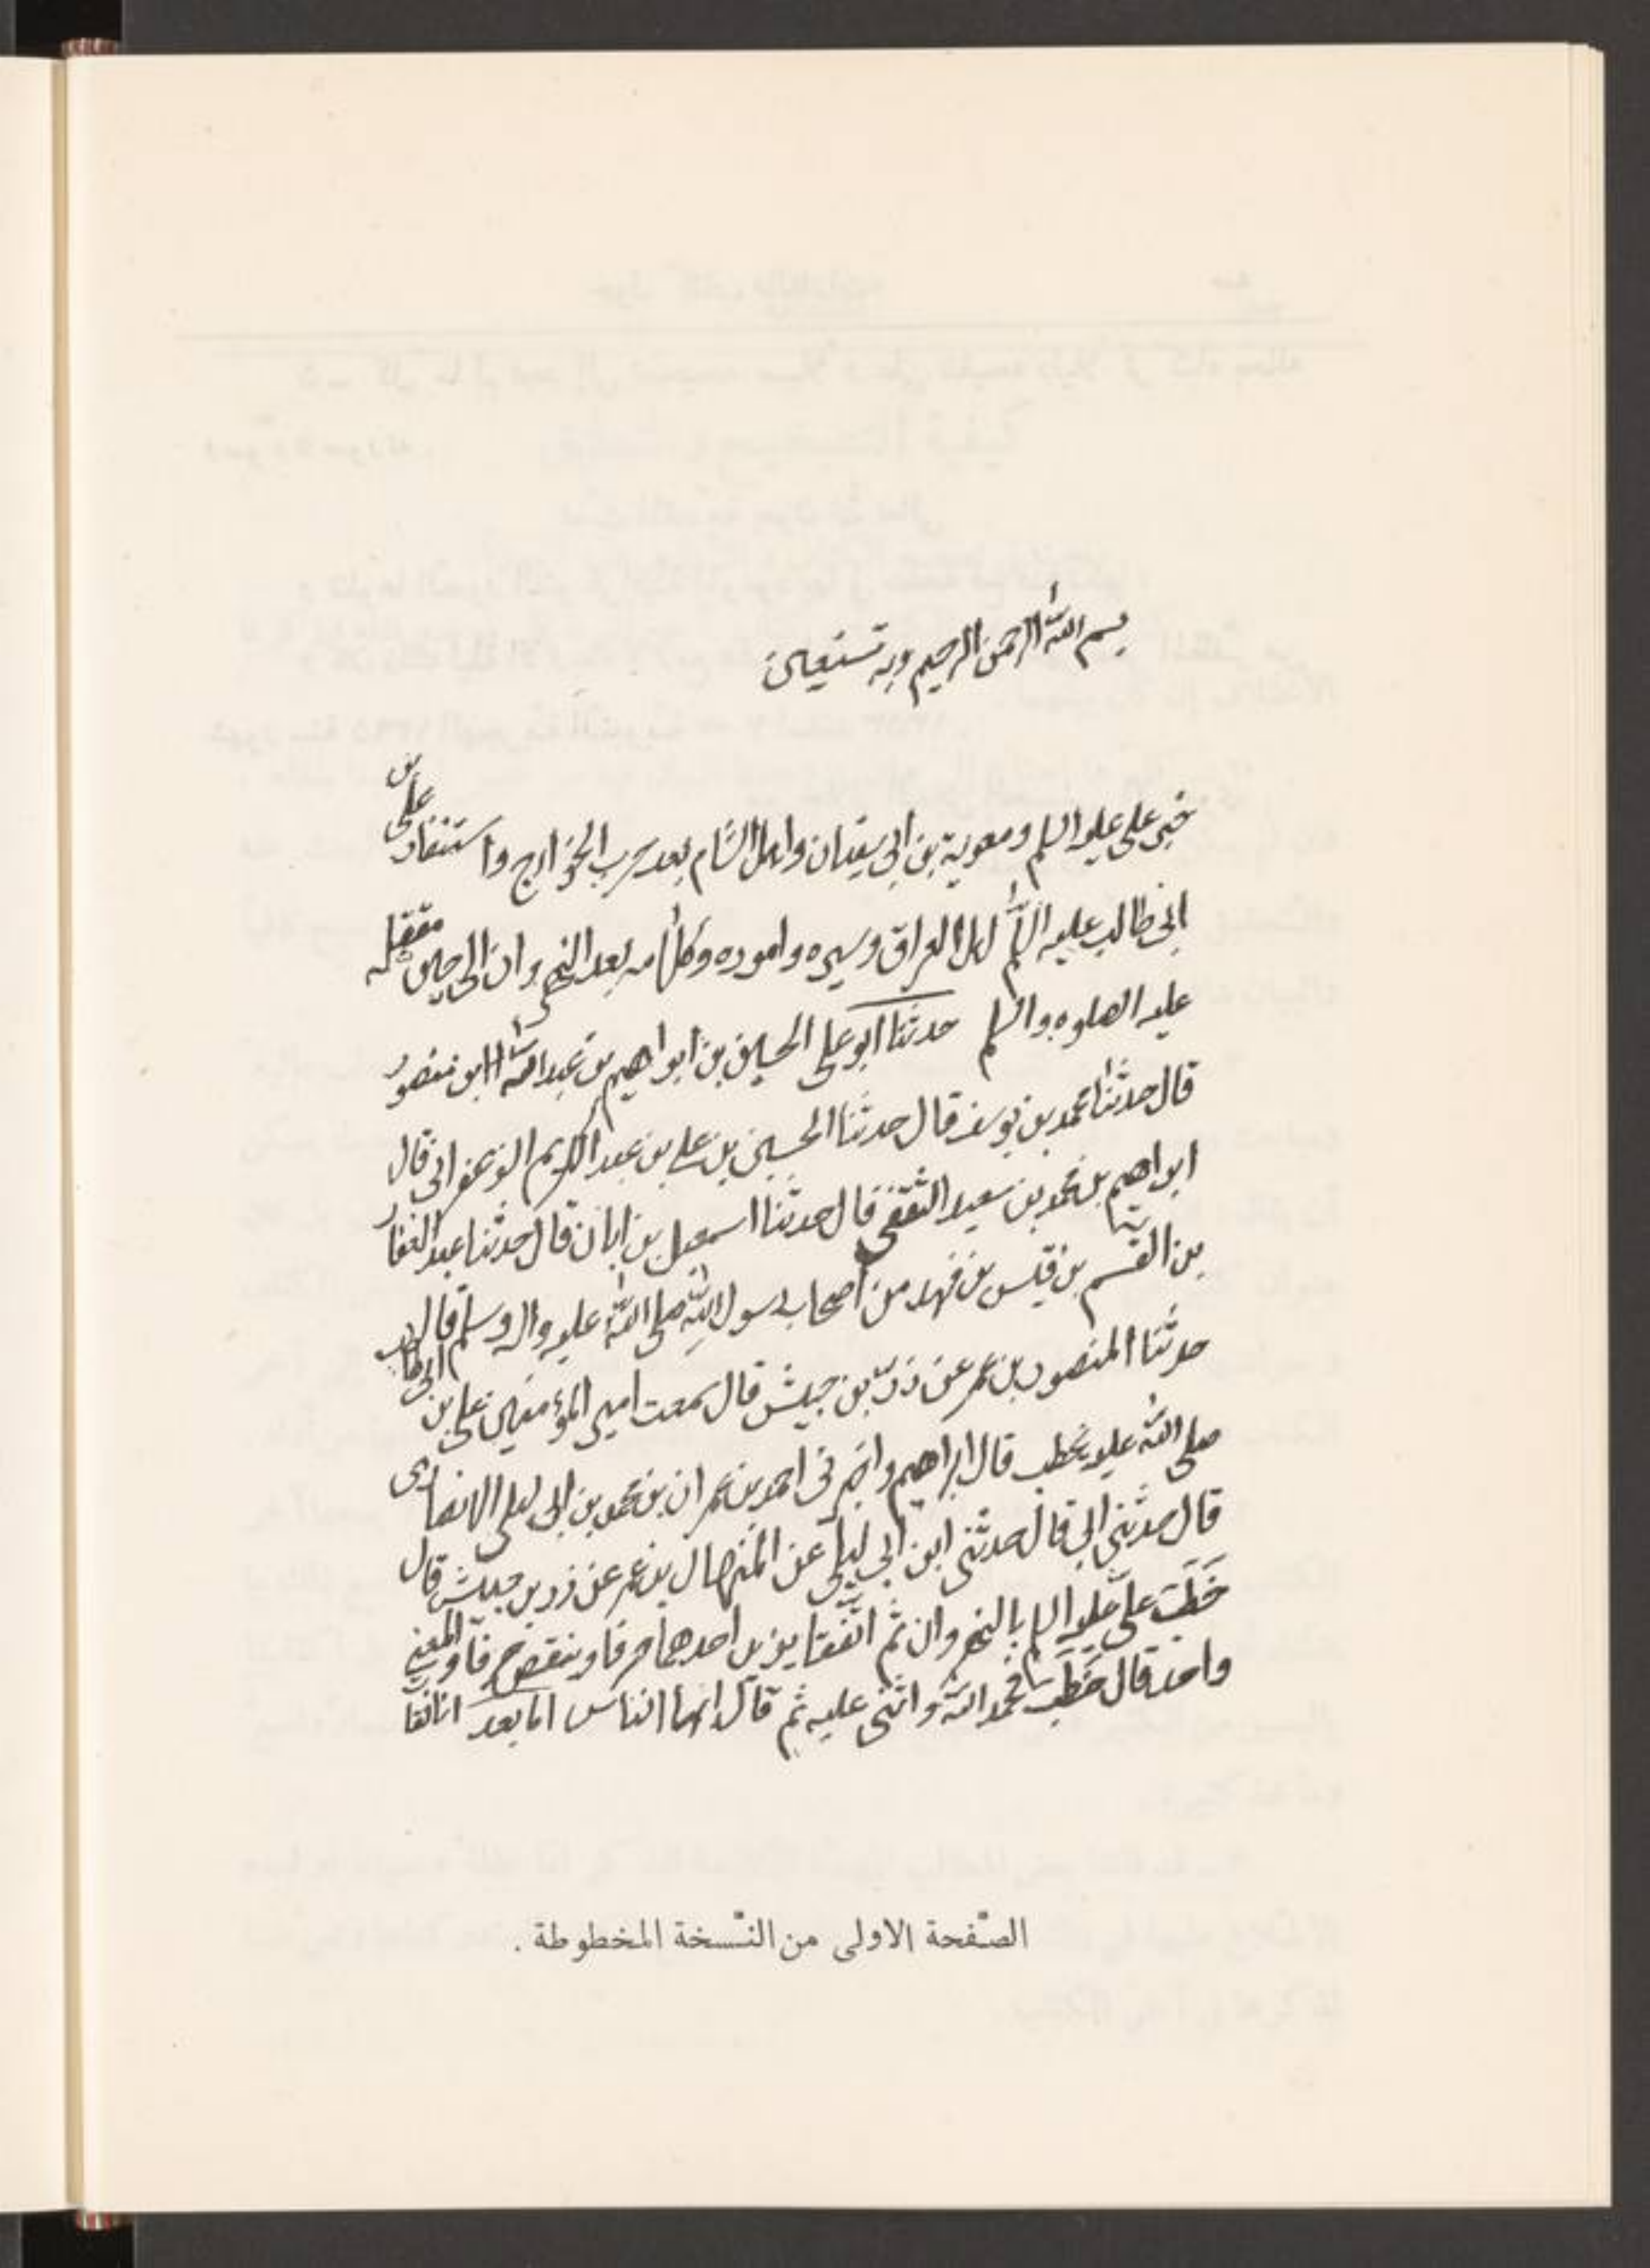 بسم الله الرحمن الرحيم وبه نستعين
خبر على عليه السلم ومعوية بن ابى سفيان واهل الشام بعد حرب الخوارج واستنفار على بن
ابى طالب عليه السلم اهل العراق وسيره واموره وكلامه بعد النهروان الى حين مقتله
عليه الصلوه والسلم حدثنا ابو على الحسين بن ابراهيم بن عبد الله ابن منصور
قال حدثنا محمد بن يوسف قال حدثنا الحسين بن على بن عبد الكريم الزعفرانى قال
ابراهيم بن محمد بن سعيد الثقفى قال حدثنا اسمعيل بن ابان قال حدثنا عبد الغفار
بن القسم بن قيس بن فهد من اصحاب رسول الله صلى الله عليه واله وسلم قال
حدثنا المنصور بن عمر عن زرّ بن حبيش قال سمعت امير المؤمنين على بن ابى طالب
صلى الله عليه يخطب قال ابراهيم واخبرنى احمد بن عمران بن محمد بن ابى ليلى الانصارى
قال حدثنى ابى قال حدثنى ابن ابى ليلى عن المنهال بن عمر عن زر بن حبيش قال
خَطَبَ علىّ عليه السلم بالنهروان ثم اتفقتا يزيد احدهما حرفا وينقص حرفا والمعنى
واحد قال خَطَبَ فحمد الله واثنى عليه ثم قال ايها الناس اما بعد انا فقأ
الصّفحة الاولى من النّسخة المخطوطة .